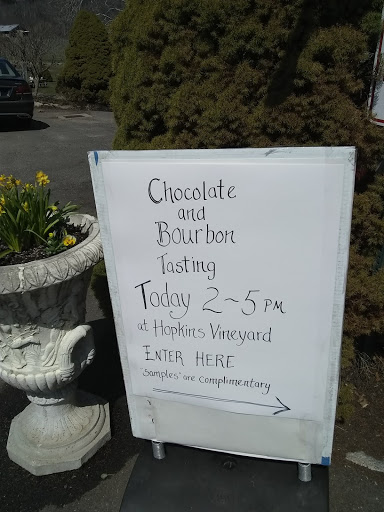 Chocolate
and
Bourbon
Tasting
Today 2~5 PM
at Hopkins Vineyard
ENTER HERE
"Samples" are complimentary